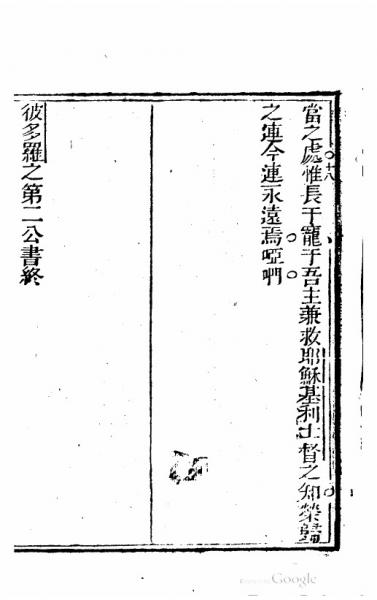 當之處惟長于寵于吾主兼救耶穌基利士督之知榮歸
十八
之連今連永遠焉啞們
彼多羅之第二公書終
Google